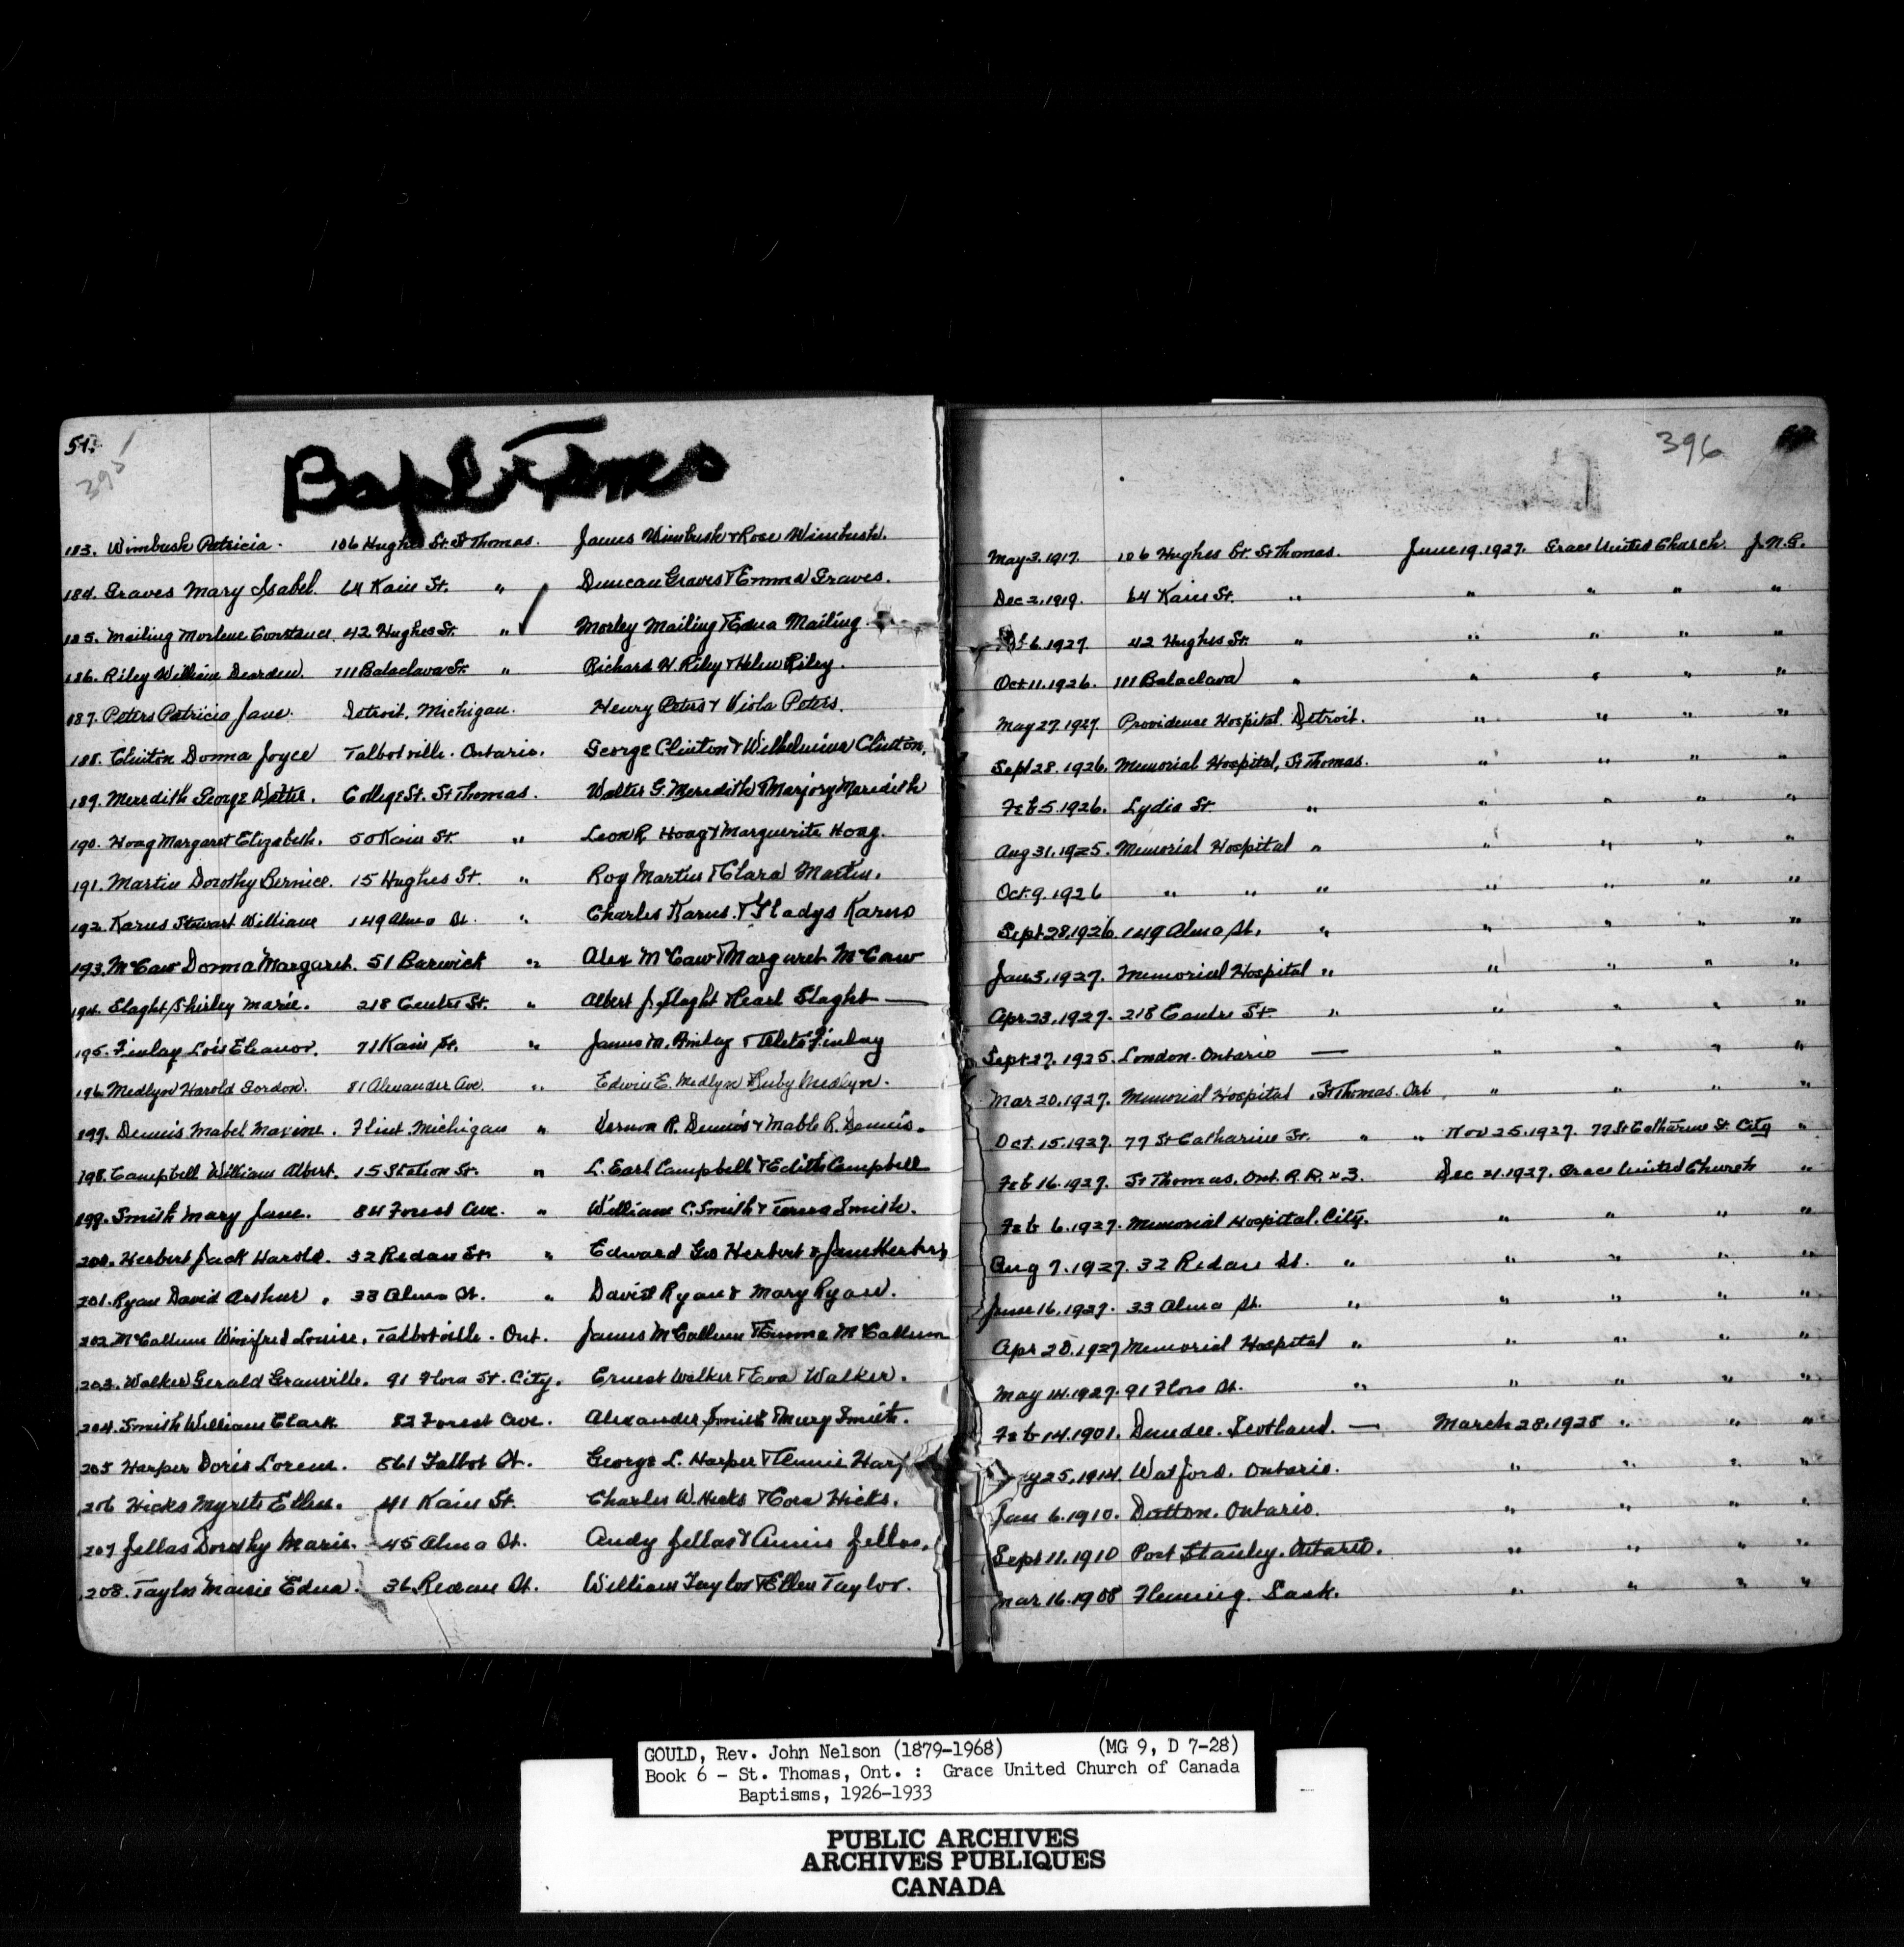 51.
395
Baptisms
183. Wimbush Patricia. 106 Hughes St. St Thomas. James Wimbush & Rose Wimbush.
184. Graves Mary Isabel. 64 Kain St. " Duncan Graves & Emma Graves.
185. Mailing Morlene Constance. 42 Hughes St. " Morley Mailing & Edna Mailing.
186. Riley William Dearden. 111 Balaclava St. " Richard H. Riley & Helen Riley.
187. Peters Patricia Jane. Detroit, Michigan. Henry Peters & Viola Peters.
188. Clinton Donna Joyce Talbotville. Ontario. George Clinton & Wilhelmina Clinton.
189. Meredith George Walter. College St. St Thomas. Walter G. Meredith & Marjory Meredith
190. Hoag Margaret Elizabeth. 50 Kain St. " Leon R. Hoag & Marguerite Hoag.
191. Martin Dorothy Bernice. 15 Hughes St. " Roy Martin & Clara Martin.
192. Karns Stewart William 149 Alma St. " Charles Karns & Gladys Karns
193. McCaw Donna Margaret. 51 Barwick " Alex McCaw & Margaret McCaw
194. Slaght Shirley Marie. 218 Centre St. " Albert J. Slaght & Pearl Slaght —
195. Finlay Lois Eleanor. 71 Kain St. " James M. Finlay & Aleta Finlay
196. Medlyn Harold Gordon. 81 Alexander Ave. " Edwin E. Medlyn Ruby Medlyn.
197. Dennis Mabel Maxine. Flint Michigan " Vernon R. Dennis & Mable R. Dennis.
198. Campbell William Albert. 15 Station St. " L. Earl Campbell & Edith Campbell
199. Smith Mary Jane. 84 Forest Ave. " William C. Smith & Teresa Smith.
200. Herbert Jack Harold. 32 Redan St. " Edward Geo Herbert & Jane Herbert
201. Ryan David Arthur. 33 Alma St. " David Ryan & Mary Ryan.
202. McCallum Winifred Louise. Talbotville. Ont. James McCallum & Emma McCallum
203. Walker Gerald Granville. 91 Flora St. City. Ernest Walker & Eva Walker.
204. Smith William Clark 82 Forest Ave. Alexander Smith & Mary Smith.
205 Harper Doris Loreen. 561 Talbot St. George L. Harper & Annie Harp
206 Hicks Myrtle Ellen. 41 Kain St. Charles W. Hicks & Cora Hicks.
207 Jellas Dorothy Marie. 45 Alma St. Andy Jellas & Annie Jellas.
208. Taylor Maisie Edna. 36 Redan St. William Taylor & Ellen Taylor.
396
May 3. 1917. 106 Hughes St. St Thomas. June 19. 1927. Grace United Church. J.N.G.
Dec 2. 1919. 64 Kain St. " " " " "
6. 1927. 42 Hughes St. " " " " "
Oct 11. 1926. 111 Balaclava " " " " "
May 27. 1927. Providence Hospital. Detroit. " " " "
Sept 28. 1926. Memorial Hospital, St Thomas. " " " "
Feb 5. 1926. Lydia St. " " " " "
Aug 31. 1925. Memorial Hospital " " " " "
Oct. 9. 1926 " " " " " " "
Sept 28. 1926. 149 Alma St. " " " " "
Jan 3. 1927. Memorial Hospital " " " " "
Apr 23. 1927. 218 Centre St. " " " " "
Sept 27. 1925. London. Ontario — " " " "
Mar 20. 1927. Memorial Hospital, St Thomas. Ont " " " "
Oct. 15. 1927. 77 St Catharine St. " " Nov 25. 1927. 77 St Catharine St. City "
Feb 16. 1927. St Thomas. Ont. R.R. #3. Dec 21. 1927. Grace United Church "
Feb 6. 1927. Memorial Hospital. City. " " " "
Aug 7. 1927. 32 Redan St. " " " " "
June 16. 1927. 33 Alma St. " " " " "
Apr 20. 1927 Memorial Hospital " " " " "
May 14. 1927. 91 Flora St. " " " " "
Feb 14. 1901. Dundee. Scotland. — March 28. 1928 " " "
y 25. 1914. Watford. Ontario. " " " "
Jan 6. 1910. Dutton. Ontario. " " " "
Sept 11. 1910 Port Stanley. Ontario. " " " "
Mar 16. 1908 Fleming. Sask. " " " "
GOULD, Rev. John Nelson (1879-1968) (MG 9, D 7-28)
Book 6 - St. Thomas, Ont. : Grace United Church of Canada
Baptisms, 1926-1933
PUBLIC ARCHIVES
ARCHIVES PUBLIQUES
CANADA